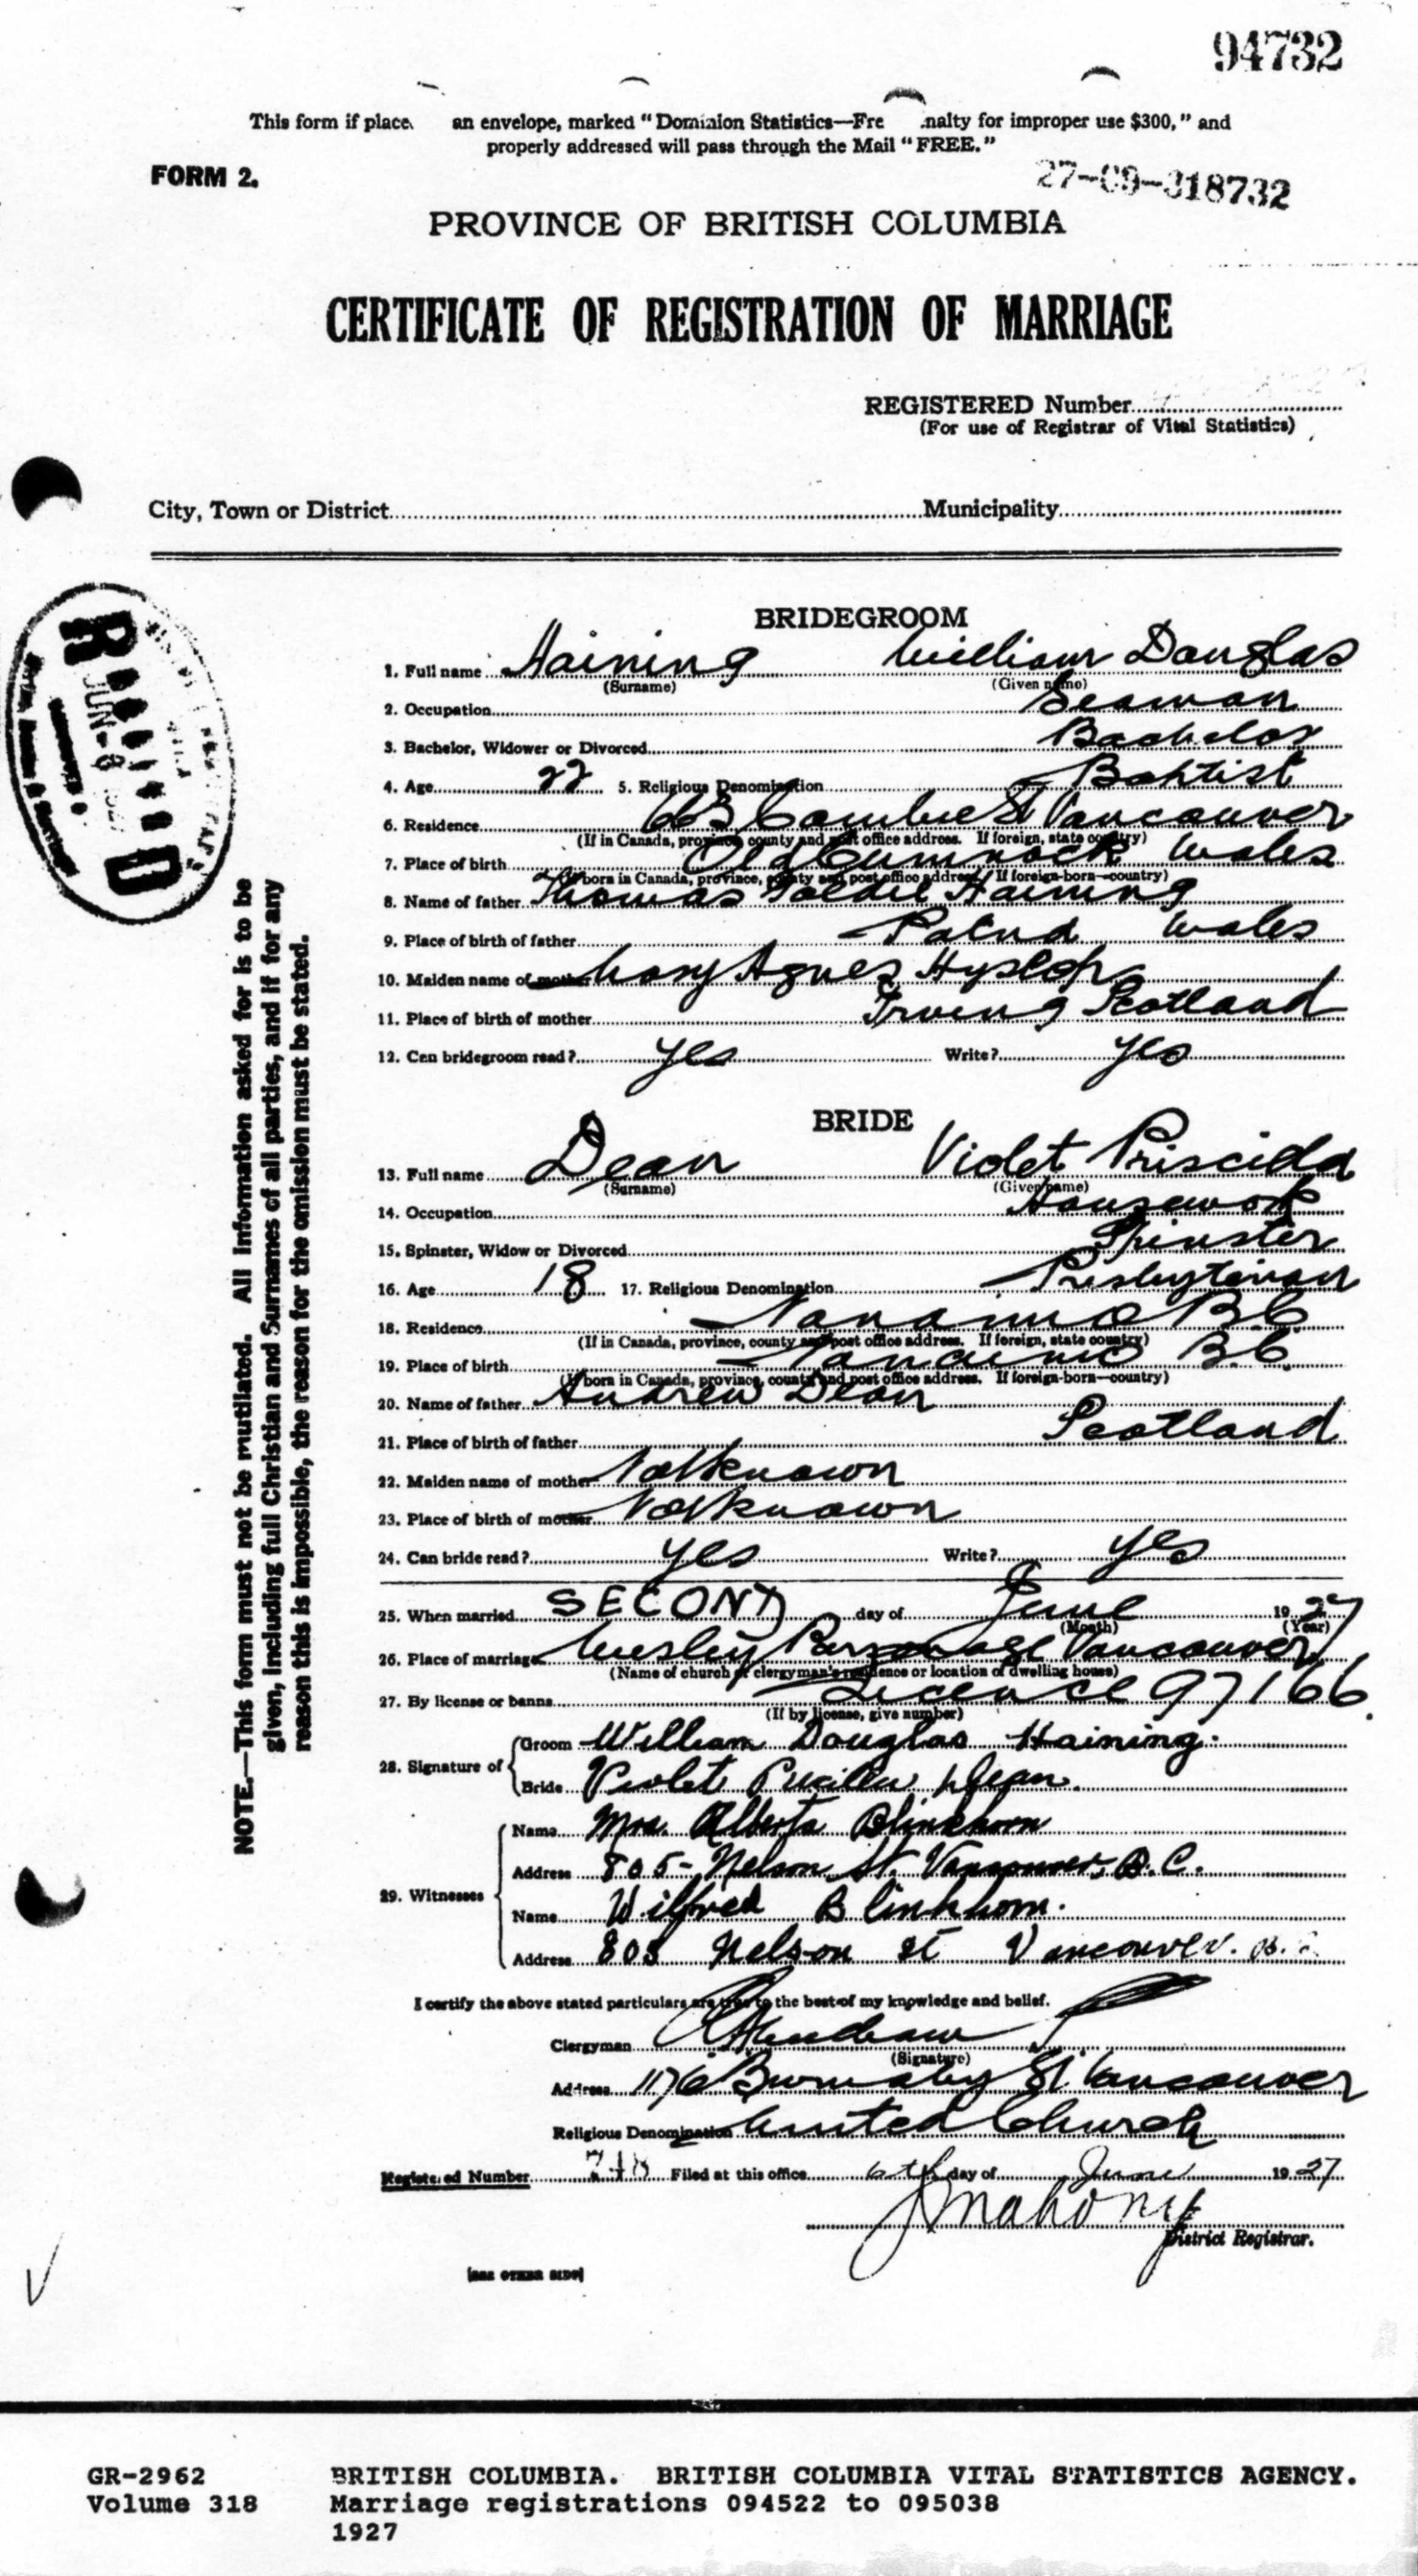 94732
This form if place an envelope, marked "Dominion Statistics—Fre nalty for improper use $300," and
properly addressed will pass through the Mail "FREE."
FORM 2.
27-09-318732
PROVINCE OF BRITISH COLUMBIA
CERTIFICATE OF REGISTRATION OF MARRIAGE
REGISTERED Number
(For use of Registrar of Vital Statistics)
City, Town or District Municipality
BRIDEGROOM
1. Full name Haining William Douglas
(Surname) (Given name)
2. Occupation Seaman
3. Bachelor, Widower or Divorced Bachelor
4. Age 22 5. Religious Denomination Baptist
6. Residence 663 Cambie St Vancouver
(If in Canada, province county and post office address. If foreign, state country)
7. Place of birth Old Cumnock Wales
(If born in Canada, province, county and post office address. If foreign-born—country)
8. Name of father Thomas Haining
9. Place of birth of father Wales
10. Maiden name of mother Mary Agnes Hyslop
11. Place of birth of mother Irving Scotland
12. Can bridegroom read? yes Write? yes
BRIDE
13. Full name Dean Violet Priscilla
(Surname) (Given name)
14. Occupation Housework
15. Spinster, Widow or Divorced Spinster
16. Age 18 17. Religious Denomination Presbyterian
18. Residence Nanaimo B.C
(If in Canada, province, county and post office address. If foreign, state country)
19. Place of birth Nanaimo B.C.
(If born in Canada, province, county and post office address. If foreign-born—country)
20. Name of father Andrew Dean
21. Place of birth of father Scotland
22. Maiden name of mother Not known
23. Place of birth of mother Not known
24. Can bride read? yes Write? yes
25. When married SECOND day of June 1927
(Month) (Year)
26. Place of marriage Wesley Parsonage Vancouver
(Name of church or clergyman's residence or location of dwelling house)
27. By license or banns Licence 97166.
(If by license, give number)
28. Signature of Groom William Douglas Haining.
Bride Violet Priscilla Dean.
29. Witnesses
Name Mrs. Alberta Blinkhorn
Address 805 - Nelson St. Vancouver, B.C.
Name Wilfred Blinkhorn.
Address 805 Nelson St Vancouver. B.C
I certify the above stated particulars are true to the best of my knowledge and belief.
Clergyman
(Signature)
Address 1176 Burnaby St Vancouver
Religious Denomination United Church
Registered Number Filed at this office 6th day of June 1927
J Mahony
District Registrar.
[SEE OTHER SIDE]
NOTE.—This form must not be mutilated. All information asked for is to be
given, including full Christian and Surnames of all parties, and if for any
reason this is impossible, the reason for the omission must be stated.
GR-2962 BRITISH COLUMBIA. BRITISH COLUMBIA VITAL STATISTICS AGENCY.
Volume 318 Marriage registrations 094522 to 095038
1927